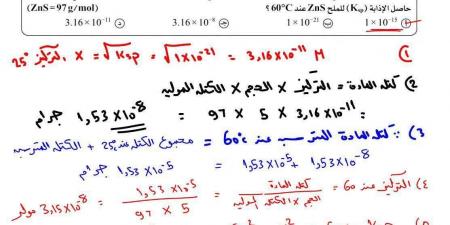 (ZnS=97g/mol)
حاصل الإذابة (Ksp) للملح ZnS عند 60°C ؟
أ 1×10⁻¹⁵ ب 3.16×10⁻⁸ د 3.16×10⁻¹¹
① 25° التركيز (x) = √Ksp = √1x10⁻²¹ = 3,16x10⁻¹¹ M
② كتلة المادة = التركيز x الحجم x الكتلة المولية
= 3,16x10⁻¹¹ x 5 x 97 = 1,53x10⁻⁸ جرام
3) ∴ كتلة المادة المترسبة عند 60°c = مجموع الكتل عند 25°c + الكتلة المترسبة
= 1,53x10⁻⁵ + 1,53x10⁻⁸ = 1,53x10⁻⁵ جرام
٤) التركيز عند 60 = كتلة المادة / الحجم x الكتلة المولية = 1,53x10⁻⁵ / 97 x 5 = 3,15x10⁻⁸ مولر